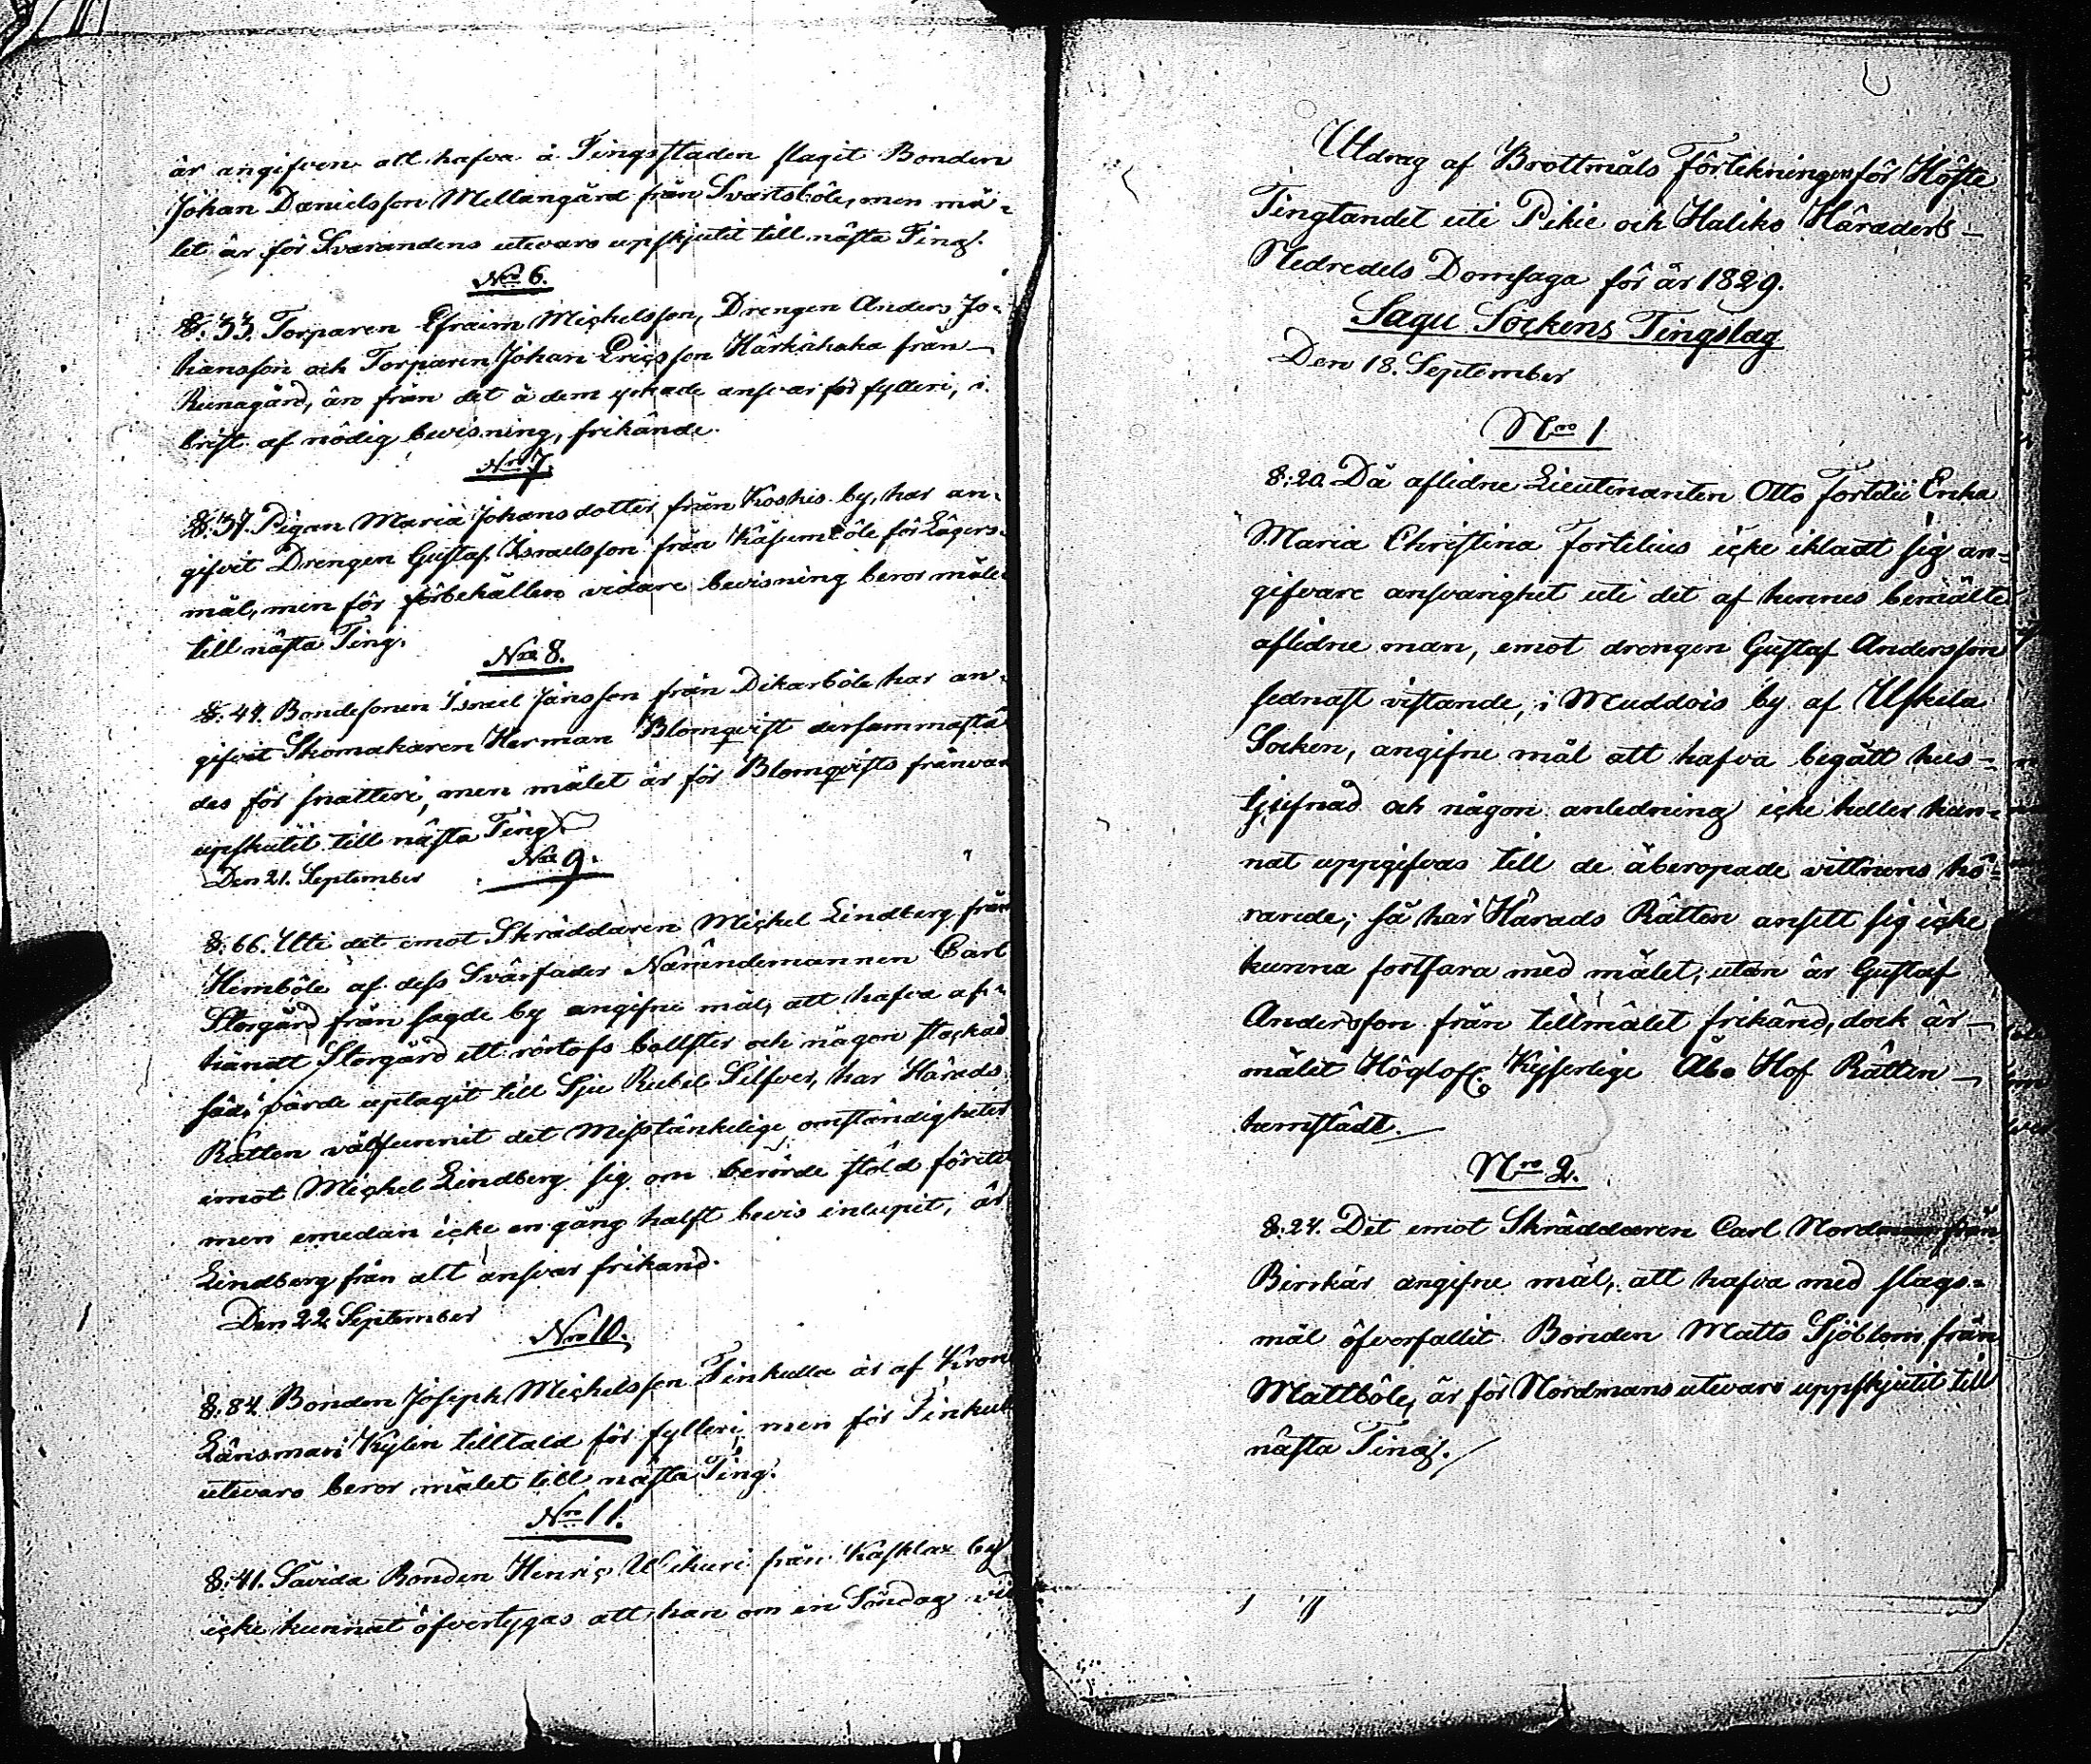 är angifven att hafva å Tingsstaden slagit Bonden
Johan Danielsson Mellangård från Svartsböle, men må-
let är för Svarandens utevaro upskjutit till nästa Ting.
Nro 6.
§. 33. Torparen Efraim Michelsson, Drengen Anders Jo-
hansson och Torparen Johan Ericsson Harkähaka från
Runagård, äro från det å dem yrkade ansvar för fylleri, i
brist af nödig bevisning, frikände.
Nro 7.
§. 37. Pigan Maria Johansdotter från Koskis by, har an-
gifvit Drengen Gustaf Israelsson från Käsumböle för Lägers-
mål, men för förbehållen vidare bevisning beror målet
till nästa Ting.
Nro 8.
§. 44. Bondesonen Israel Jansson från Dikarböle har an-
gifvit Skomakaren Herman Blomqvist dersammastä
des för snatteri, men målet är för Blomqvists frånvaro
upskutit till nästa Ting.
Den 21. September
Nro 9.
§. 66. Uti det emot Skräddaren Michel Lindberg från
Himböle af dess Svärfader Nämndemannen Carl
Storgård från sagde by angifne mål, att hafva af-
händt Storgård ett bollster och någon
säd, värde uptagit till Sju Rubel Silfver, har Härads
Rätten väl funnit det Misstänkelige omständigheter
emot Michel Lindberg sig om berörde stöld förete
men emedan icke en gång halft bevis inlupit, är
Lindberg från allt ansvar frikänd.
Den 22 September
Nro 10.
§. 84. Bonden Joseph Michelsson Finkulla är af Kron
Länsman Kylin tilltald för fylleri, men för Finkull
utevaro beror målet till nästa Ting.
Nro 11.
§. 41. Såvida Bonden Henric från Kasklax by
icke kunnat öfvertygas att han om en Söndag
Utdrag af Brottmåls Förtekningen för Höste
Tingtandet uti Pikie och Haliko Häraders
Nedredels Domsaga för år 1829.
Sagu Sockens Tingslag
Den 18. September
Nro 1
§. 20. Då aflidne Lieutenanten Otto Fortelii Enka
Maria Christina Fortelius icke iklädt sig an-
gifvare ansvarighet uti det af hennes bemälte
aflidne man, emot drengen Gustaf Andersson
sednast vistande, i Muddais by af Uskela
Socken, angifne mål att hafva begått hus-
tjufnad och någon anledning icke heller kun-
nat uppgifvas till de åberopade vittnens hö-
rande; så har Härads Rätten ansett sig icke
kunna fortfara med målet; utan är Gustaf
Andersson från tillmålet frikänd, dock är
målet Höglofl. Kejserlige Åbo Hof Rätten
hemstäldt.
Nro 2.
§. 24. Det emot Skräddaren Carl Nordman från
Birskär angifne mål, att hafva med slags-
mål öfverfallit Bonden Matts Sjöblom från
Mattböle, är för Nordmans utevaro uppskjutit till
nästa Ting.